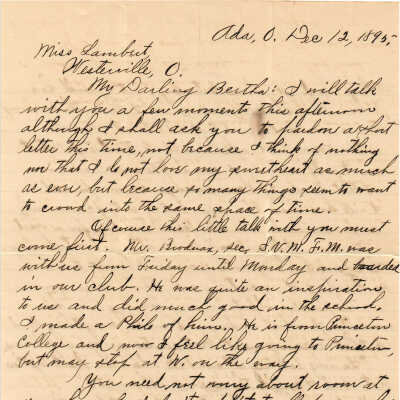 Ada, O. Dec 12, 1895,
Miss Lambert,
Westerville, O.
My Darling Bertha: I will talk
with you a few moments this afternoon
although I shall ask you to pardon a short
letter this time, not because I think of nothing
nor that I do not love my sweetheart as much
as ever, but because so many things seem to want
to crowd into the same space of time.
Of course this little talk with you must
come first. Mr. sec. S.V.M. F.M. was
with us from Friday until Monday and boarded
in our club. He was quite an inspiration
to us and did much good in the school.
I made a of him. He is from Princeton
College and now I feel like going to Princeton,
but may stop at W. on the way.
You need not worry about room at